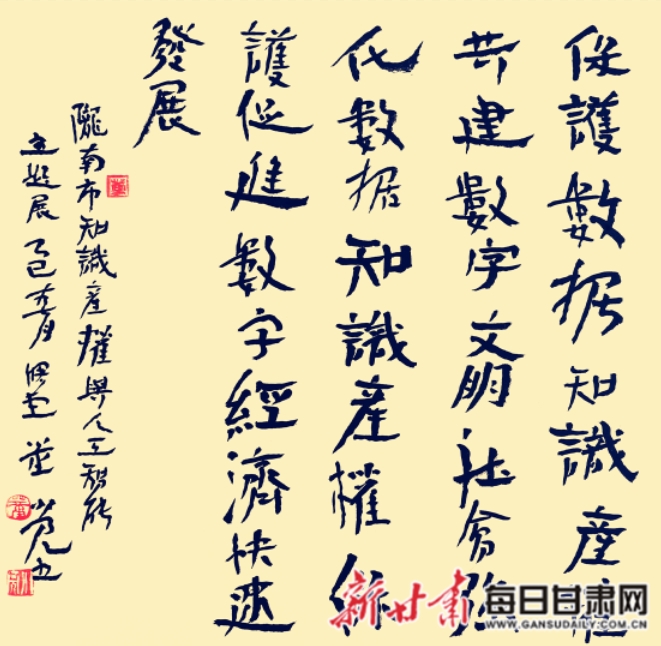 保護數据知識產權
共建數字文明社會强
化數据知識產權保
護促進數字經濟快速
發展
隴南市知識產權與人工智能
主題展乙巳
新甘肃 每日甘肃网
WWW.GANSUDAILY.COM.CN